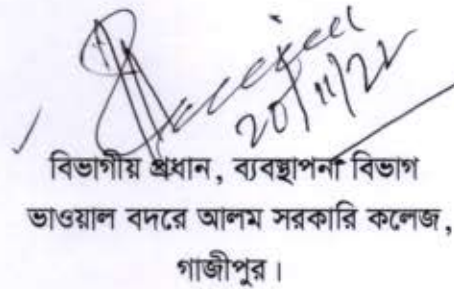 20/11/22
বিভাগীয় প্রধান, ব্যবস্থাপনা বিভাগ
ভাওয়াল বদরে আলম সরকারি কলেজ,
গাজীপুর।